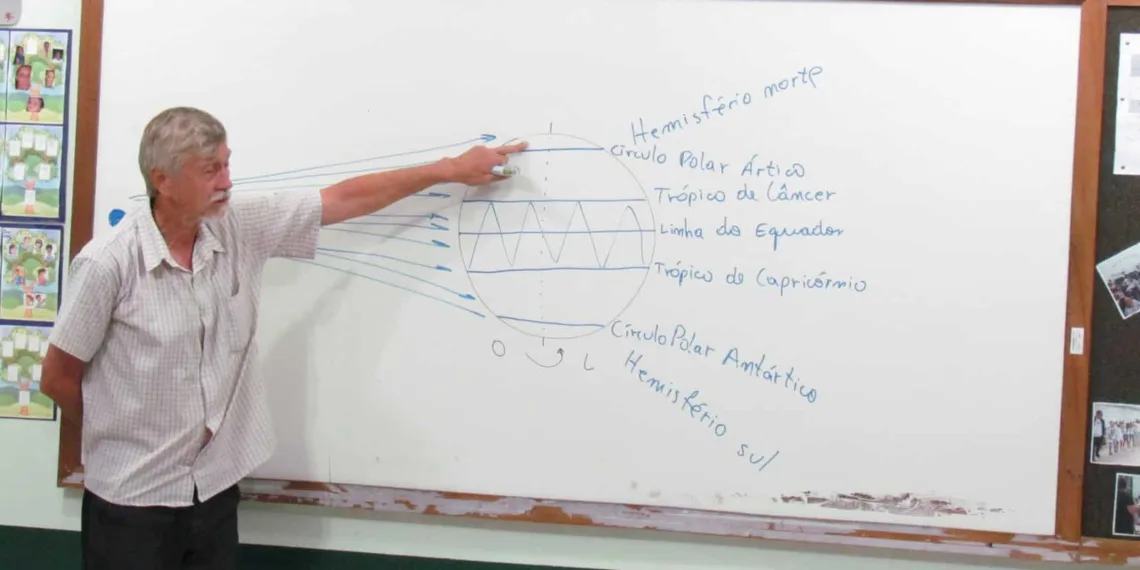 Hemisfério norte
Círculo Polar Ártico
Trópico de Câncer
Linha do Equador
Trópico de Capricórnio
Círculo Polar Antártico
Hemisfério sul
O L